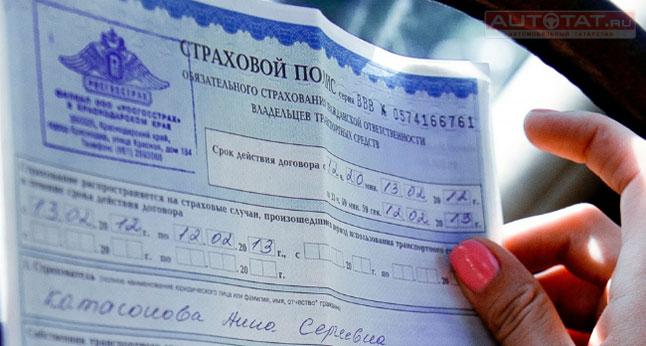 AUTOTAT.RU
АВТОМОБИЛЬНЫЙ ТАТАРСТАН
РОСГОССТРАХ
ФИЛИАЛ ООО "РОСГОССТРАХ"
В КРАСНОДАРСКОМ КРАЕ
Краснодарский край,
улица Красная, дом
Телефон: (861)
СТРАХОВОЙ ПОЛИС серия ВВВ № 0574166761
ОБЯЗАТЕЛЬНОГО СТРАХОВАНИЯ ГРАЖДАНСКОЙ ОТВЕТСТВЕННОСТИ
ВЛАДЕЛЬЦЕВ ТРАНСПОРТНЫХ СРЕДСТВ
Срок действия договора с 12 ч. 20 мин. 13.02 20 12 г.
12.02 20 13 г.
Страхование распространяется на страховые случаи, произошедшие в период использования транспортного
в течение срока действия договора
13.02 20 12 г. по 12.02 20 13 г., с 20 г. по 20
20 г. по 20 г., с 20 г. по
1. Страхователь (полное наименование юридического лица или фамилия, имя, отчество гражданина)
Катасонова Анна Сергеевна
Собственник транспортного